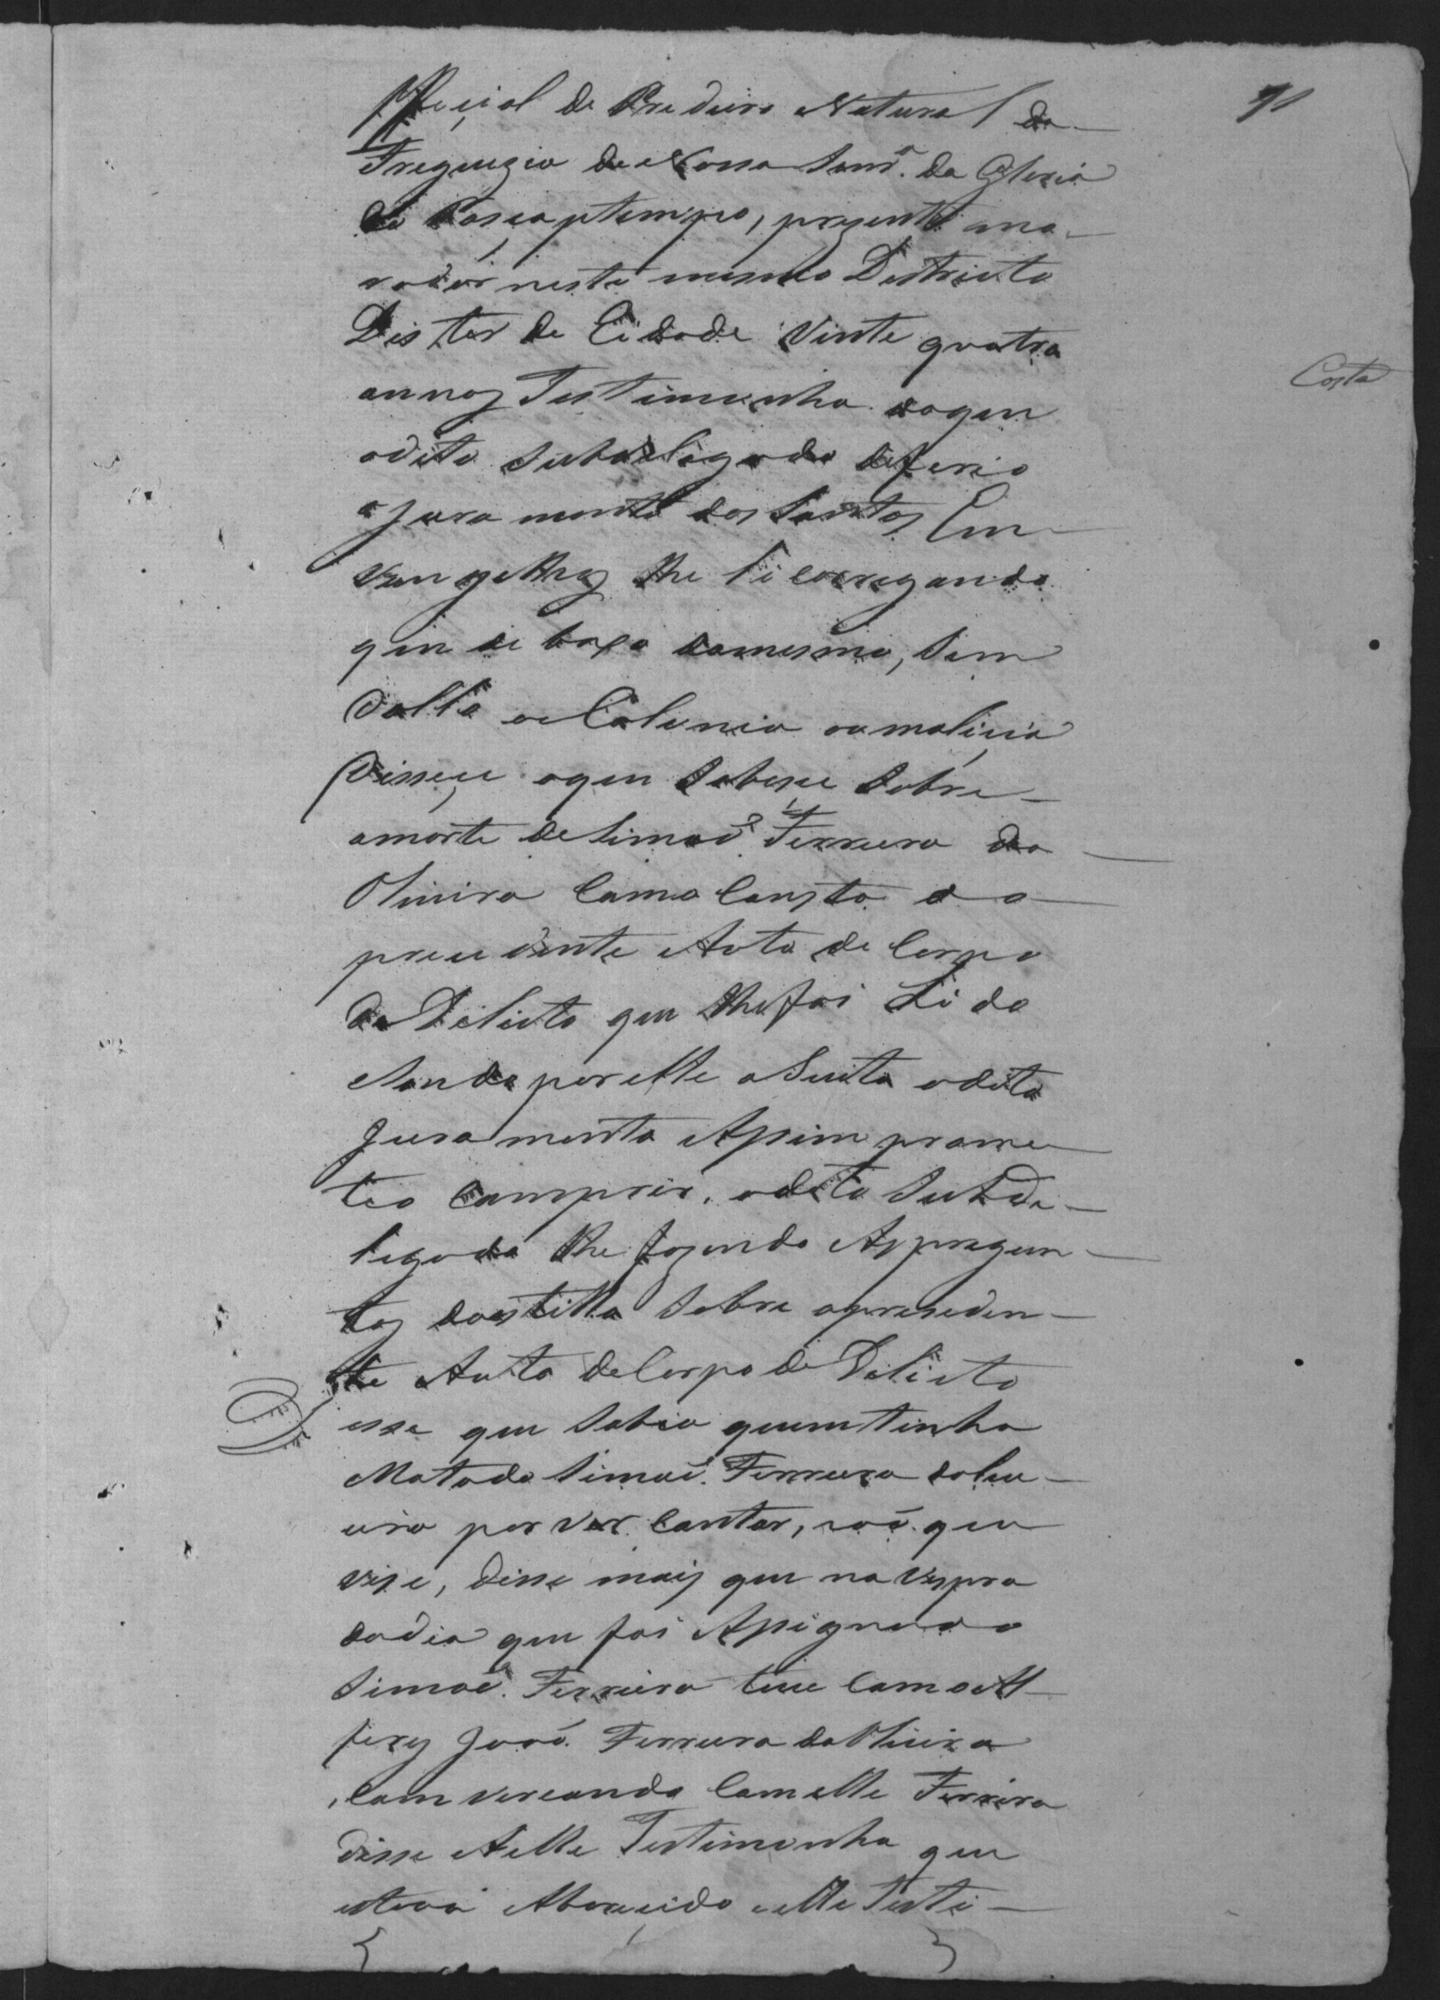 71
Official de Predeiro Natural da
Freguezia de Nossa Senr.ª da Gloria
de presente mo-
rador neste mesmo Destricto
Dis ter de Eidade Vinte quatro
annos Testimunha aoqen
odito Subdeligado diferio
o Juramento dos Santos En
vangelhos lhe Ecorregando
qen de baxo do mesmo, sem
dollo ne Calunia ou malicia
disseçe oqen Sobeçe Sobre
amorte de Simaõ Ferreira da
Oliveira Como Consta do
precedente Auto de Corpo
de Delicto qen lhe foi Lido
Sendo por elle aSeito odito
Juramento Assim prome
teo Comprir, odito Subde-
legado lhe fazendo As pregun
tas doestillo Sobre opreseden-
te Auto de Corpo de Delicto
esse qen Sabia quem tinha
Matado Simaõ Ferreira doLiv
eira por ver Contar, naõ qen
vise, disse mais qen na vespra
dodia qen foi Assignado
Simaõ Ferreira teve Com o Al
feres Joaõ Ferreira da Oliveira
Comvercando Com elle Ferreira
disse Aelle Testimunha qen
estava Aborecido elle Testi-
Costa